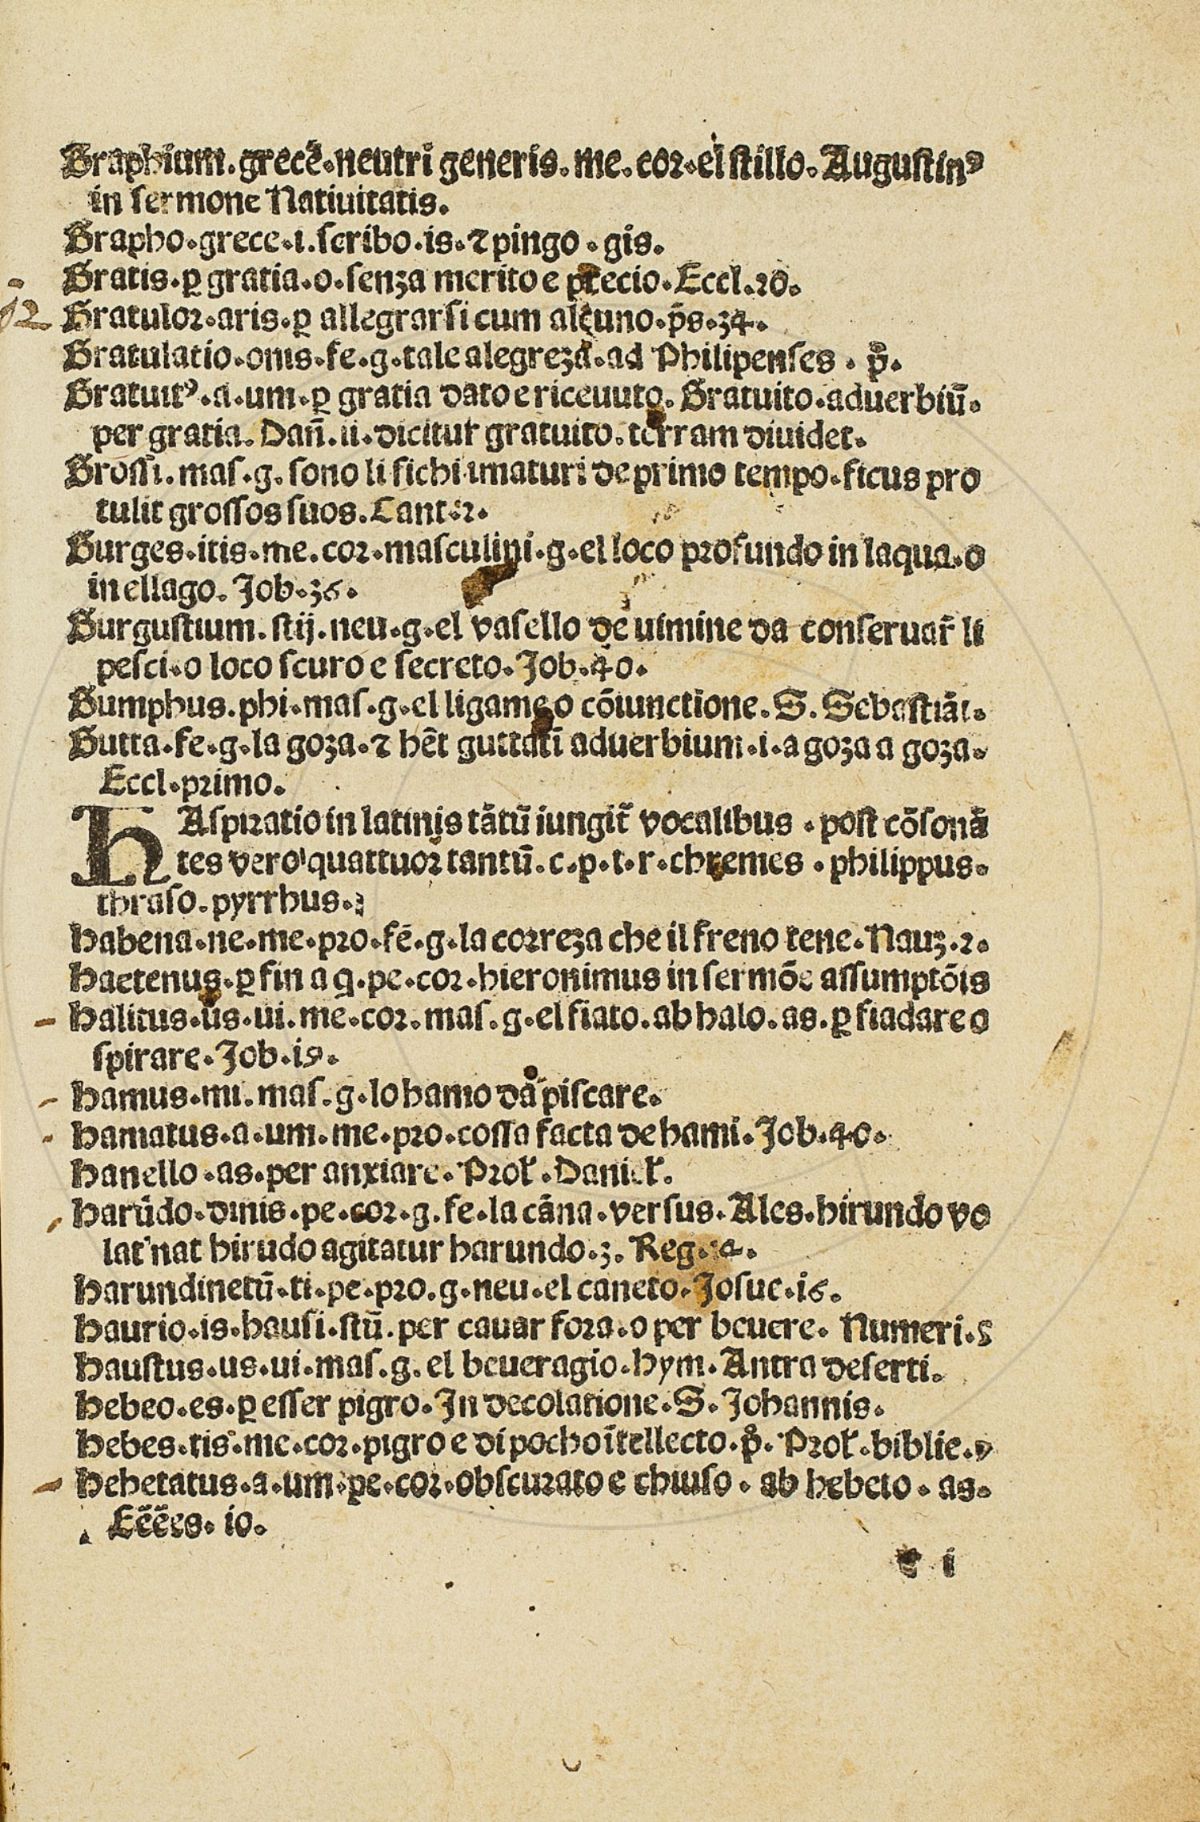 Graphium. grece᷑. neutri generis. me. cor. el stillo. Augustinꝰ
in sermone Natiuitatis.
Grapho. grece. i. scribo. is. ⁊ pingo. gis.
Gratis. ꝑ gratia. o. senza merito e precio. Eccl. 20.
12 Gratulor. aris. ꝑ allegrarsi cum alcuno. p̄s. 34.
Gratulatio. onis. fe. g. tale alegreza. ad Philipenses. pͦ.
Gratuitꝰ. a. um. ꝑ gratia dato e riceuuto. Gratuito. aduerbiū.
per gratia. Dan̄. ii. dicitur gratuito. terram diuidet.
Grossi. mas. g. sono li fichi imaturi de primo tempo. ficus pro
tulit grossos suos. Cant. 2.
Gurges. itis. me. cor. masculini. g. el loco profundo in laqua. o
in ellago. Job. 36.
Gurgustium. stij. neu. g. el vasello de uimine da conseruar̄ li
pesci. o loco scuro e secreto. Job. 40.
Gumphus. phi. mas. g. el ligame o cōiunctione. S. Sebastiāi.
Gutta. fe. g. la goza. ⁊ hēt guttati aduerbium. i. a goza a goza.
Eccl. primo.
H Aspiratio in latinis tātū iungit᷑ vocalibus. post cōsonā
tes vero quattuor tantū. c. p. t. r. chremes. philippus.
thraso. pyrrhus.
Habena. ne. me. pro. fē. g. la correza che il freno tene. Nauz. 2.
Hactenus. ꝑ fin a q̄. pe. cor. hieronimus in sermōe assumptōis
Halitus. us. ui. me. cor. mas. g. el fiato. ab halo. as. ꝑ fiadare o
spirare. Job. 19.
Hamus. mi. mas. g. lo hamo da piscare.
Hamatus. a. um. me. pro. cossa facta de hami. Job. 40.
Hanello. as. per anxiare. Prol̄. Daniel̄.
Harūdo. dinis. pe. cor. g. fe. la cāna. versus. Ales. hirundo vo
lat' nat hirudo agitatur harundo. 3. Reg. 14.
Harundinetū. ti. pe. pro. g. neu. el caneto. Josue. 16.
Haurio. is. hausi. stū. per cauar fora. o per beuere. Numeri. 5
Haustus. us. ui. mas. g. el beueragio. hym. Antra deserti.
Hebeo. es. ꝑ esser pigro. In decolatione. S. Johannis.
Hebes. tis. me. cor. pigro e di pocho ītellecto. pͦ. Prol̄. biblie.
Hebetatus. a. um. pe. cor. obscurato e chiuso. ab hebeto. as.
10.
i